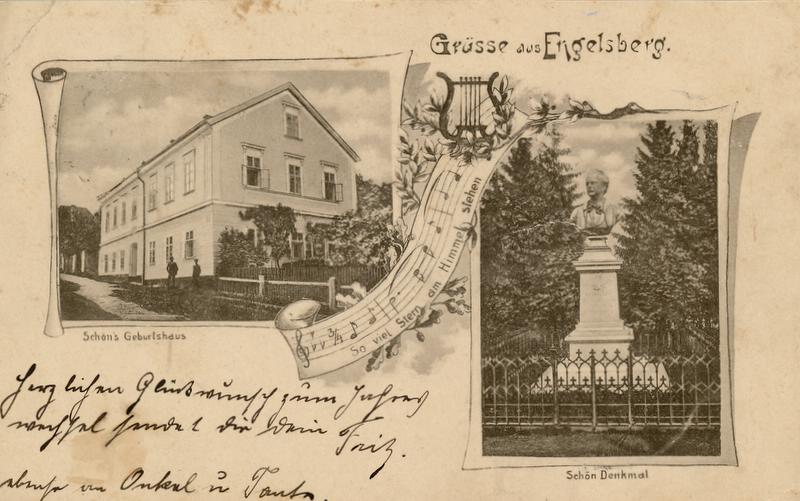 Grüsse aus Engelsberg.
3/4
So viel Stern am Himmel stehen
Schön's Geburtshaus
Schön Denkmal
Herzlichen Glückwunsch zum Jahres
wechsel sendet dir dein Fritz.
ebenso an Onkel u Tante.